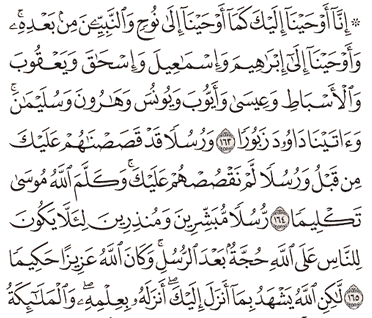 ۞ إِنَّآ أَوْحَيْنَآ إِلَيْكَ كَمَآ أَوْحَيْنَآ إِلَىٰ نُوحٍ وَٱلنَّبِيِّـۧنَ مِنۢ بَعْدِهِۦۚ
وَأَوْحَيْنَآ إِلَىٰٓ إِبْرَٰهِيمَ وَإِسْمَـٰعِيلَ وَإِسْحَـٰقَ وَيَعْقُوبَ
وَٱلْأَسْبَاطِ وَعِيسَىٰ وَأَيُّوبَ وَيُونُسَ وَهَـٰرُونَ وَسُلَيْمَـٰنَۚ
وَءَاتَيْنَا دَاوُۥدَ زَبُورًا ١٦٣ وَرُسُلًا قَدْ قَصَصْنَـٰهُمْ عَلَيْكَ
مِن قَبْلُ وَرُسُلًا لَّمْ نَقْصُصْهُمْ عَلَيْكَۚ وَكَلَّمَ ٱللَّهُ مُوسَىٰ
تَكْلِيمًا ١٦٤ رُّسُلًا مُّبَشِّرِينَ وَمُنذِرِينَ لِئَلَّا يَكُونَ
لِلنَّاسِ عَلَى ٱللَّهِ حُجَّةٌۢ بَعْدَ ٱلرُّسُلِۚ وَكَانَ ٱللَّهُ عَزِيزًا حَكِيمًا
١٦٥ لَّـٰكِنِ ٱللَّهُ يَشْهَدُ بِمَآ أَنزَلَ إِلَيْكَۖ أَنزَلَهُۥ بِعِلْمِهِۦۖ وَٱلْمَلَـٰٓئِكَةُ